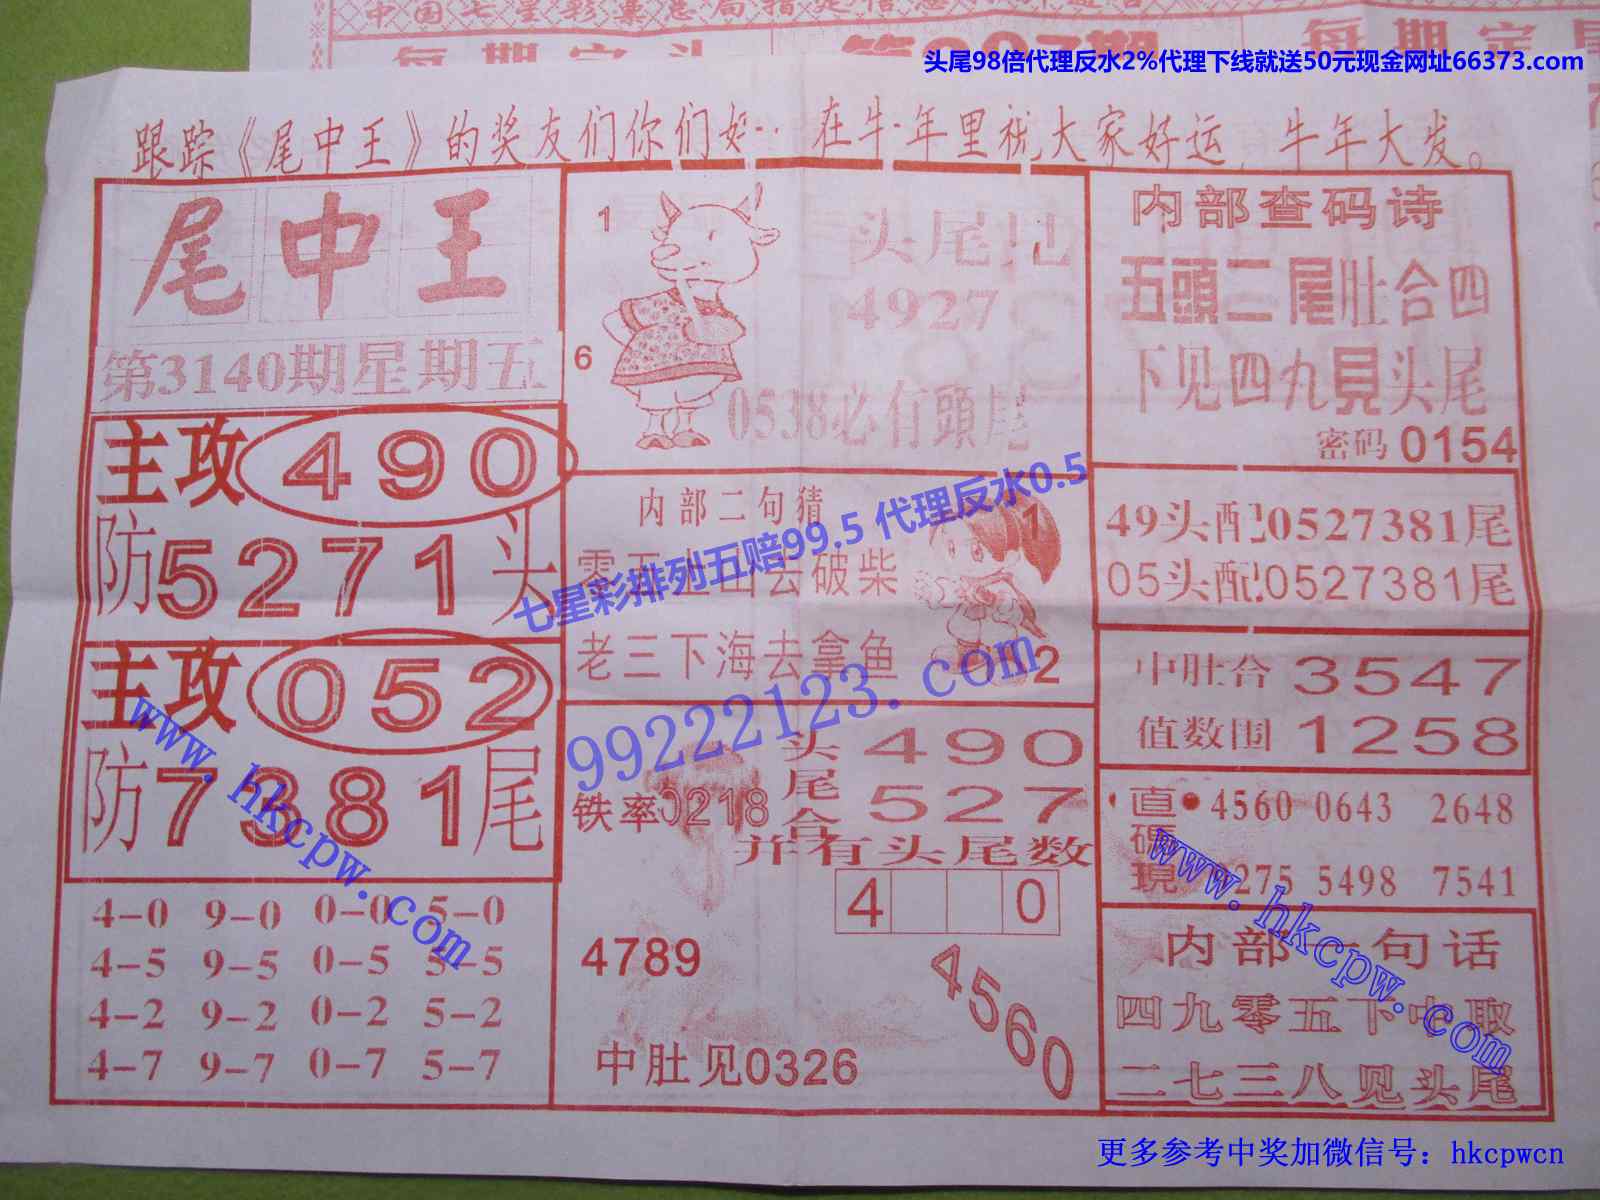 中国七星彩票总局指定信息
每期定头
每期定尾
头尾98倍代理反水2%代理下线就送50元现金网址66373.com
跟踪《尾中王》的奖友们你们好·· 在牛·年里祝大家好运，牛年大发。
尾中王
第3140期星期五
主攻 490
防5271头
主攻 052
防7381尾
4-0 9-0 0-0 5-0
4-5 9-5 0-5 5-5
4-2 9-2 0-2 5-2
4-7 9-7 0-7 5-7
1
6
头尾见
4927
0538必有頭尾
内部二句猜
零五上山去破柴
老三下海去拿鱼
1
02
头尾合
490
527
铁率0218
并有头尾数
4 0
4789
4560
中肚见0326
内部查码诗
五頭二尾肚合四
下见四九見头尾
密码 0154
49头配0527381尾
05头配0527381尾
中肚合 3547
值数围 1258
直碼現
4560 0643 2648
275 5498 7541
内部一句话
四九零五下中取
二七三八见头尾
七星彩排列五赔99.5 代理反水0.5
99222123.com
www.hkcpw.com
www.hkcpw.com
更多参考中奖加微信号：hkcpwcn